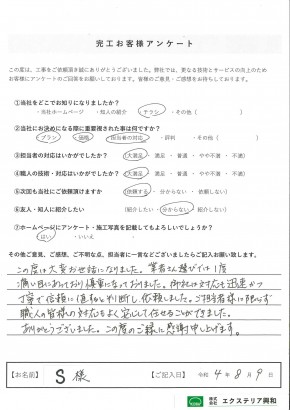 完工お客様アンケート
この度は、工事をご依頼頂き誠にありがとうございました。弊社では、更なる技術とサービスの向上のため
お客様にアンケートのご回答をお願いしております。皆様のご意見・ご感想をお待ちしております。
①当社をどこでお知りになりましたか?
・当社ホームページ ・知人の紹介 ・チラシ ・その他( )
②当社にお決めになる際に重要視された事は何ですか?
・プラン ・価格 ・担当者の対応 ・評判 ・その他( )
③担当者の対応はいかがでしたか? (大満足 ・ 満足 ・ 普通 ・ やや不満 ・ 不満)
④職人の技術・対応はいかがでしたか? (大満足 ・ 満足 ・ 普通 ・ やや不満 ・ 不満)
⑤次回も当社にご依頼頂けますか (依頼する ・ 分からない ・ 依頼しない)
⑥友人・知人に紹介したい (紹介したい ・ 分からない ・ 紹介しない)
⑦ホームページにアンケート・施工写真を記載してもよろしいでしょうか?
・はい ・いいえ
その他ご意見、ご感想、ご不明な点、担当者に一言などございましたらご記入お願い致します。
この度は大変お世話になりました。業者さん選びでは1度
痛い目にあっており慎重になっておりました。御社は対応も迅速かつ
丁寧で信頼に値すると判断し依頼しました。ご担当者様に限らず
職人の皆様の対応もよく安心して任せることができました。
ありがとうございました。この度のご縁に感謝申し上げます。
【お名前】 S 様 【ご記入日】 令和 4 年 8 月 9 日
株式会社 エクステリア興和